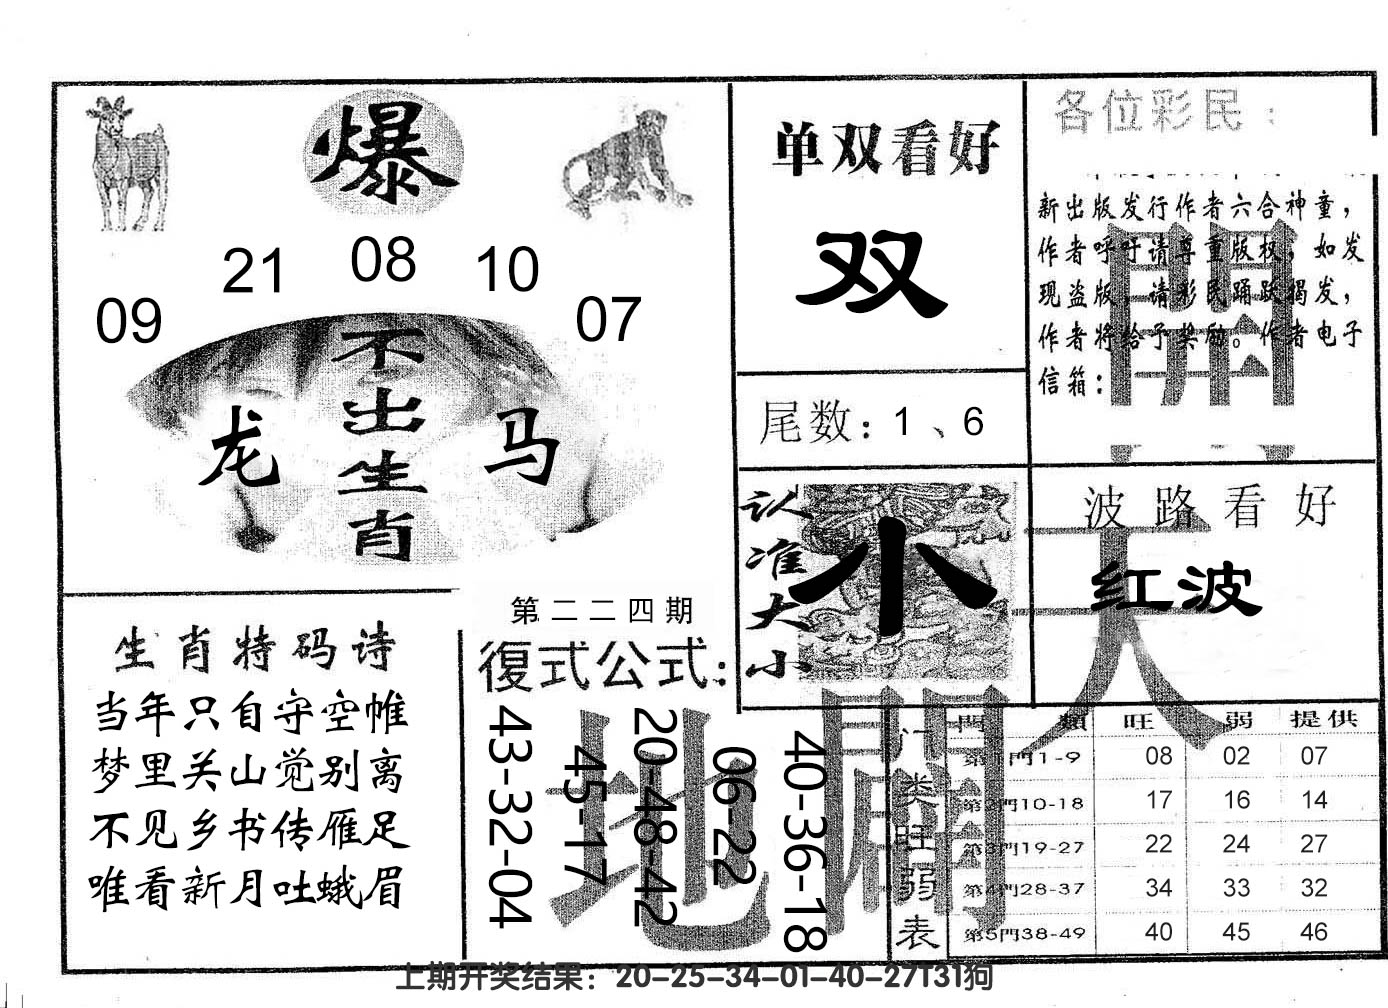 爆
09 21 08 10 07
不出生肖
龙 马
单双看好
双
尾数：1、6
各位彩民：
新出版发行作者六合神童，
作者呼吁请尊重版权，如发
现盗版，请彩民踊跃揭发，
作者将给予奖励。作者电子
信箱：
開
认准大小
小
波路看好
红波
天
生肖特码诗
当年只自守空帷
梦里关山觉别离
不见乡书传雁足
唯看新月吐蛾眉
第二二四期
復式公式：
43-32-04
45-17
20-48-42
06-22
40-36-18
地
門类旺弱表
門類 旺 弱 提供
第1門1-9 08 02 07
第2門10-18 17 16 14
第3門19-27 22 24 27
第4門28-37 34 33 32
第5門38-49 40 45 46
上期开奖结果：20-25-34-01-40-27T31狗